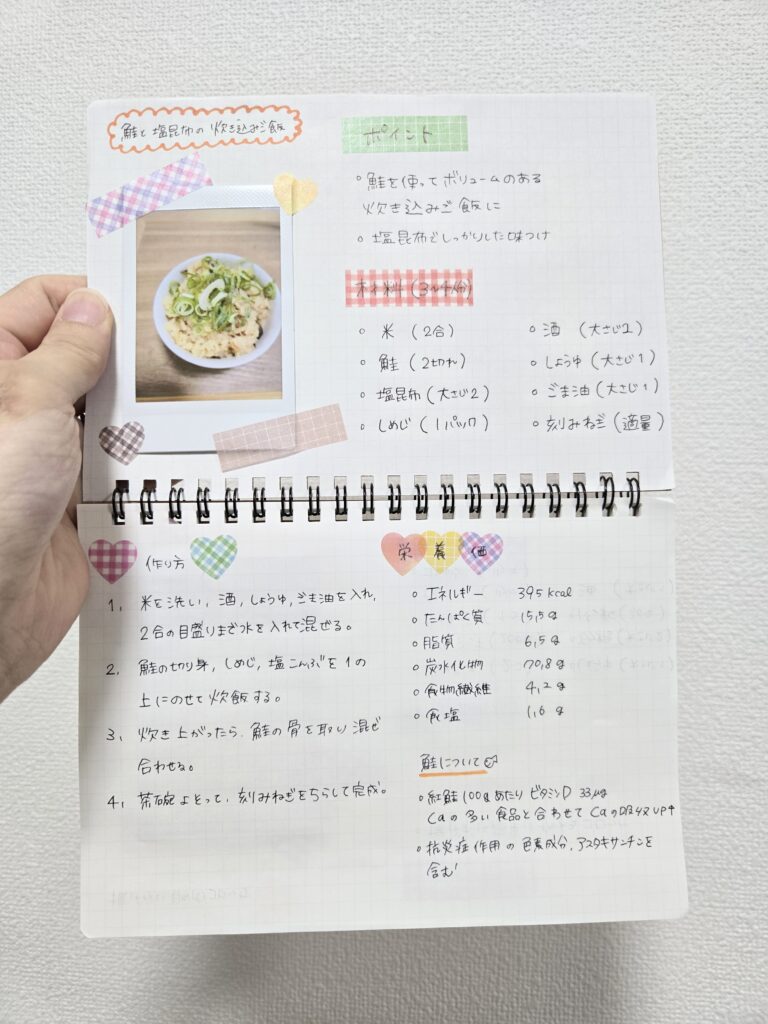 鮭と塩昆布の炊き込みご飯
ポイント
○鮭を使ってボリュームのある
炊き込みご飯に
○塩昆布でしっかりした味つけ
材料(3〜4人分)
○米(2合)
○鮭(2切れ)
○塩昆布(大さじ2)
○しめじ(1パック)
○酒(大さじ2)
○しょうゆ(大さじ1)
○ごま油(大さじ1)
○刻みねぎ(適量)
作り方
1, 米を洗い,酒,しょうゆ,ごま油を入れ,
2合の目盛りまで水を入れて混ぜる。
2, 鮭の切り身,しめじ,塩こんぶを1の
上にのせて炊飯する。
3, 炊き上がったら,鮭の骨を取り混ぜ
合わせる。
4, 茶碗よとって,刻みねぎをちらして完成。
栄養価
○エネルギー 395kcal
○たんぱく質 15,5g
○脂質 6,5g
○炭水化物 70,8g
○食物繊維 4,2g
○食塩 1,6g
鮭について
○紅鮭100gあたりビタミンD 33μg
Caの多い食品と合わせてCaの吸収UP↑
○抗炎症作用の色素成分,アスタキサンチンを
含む